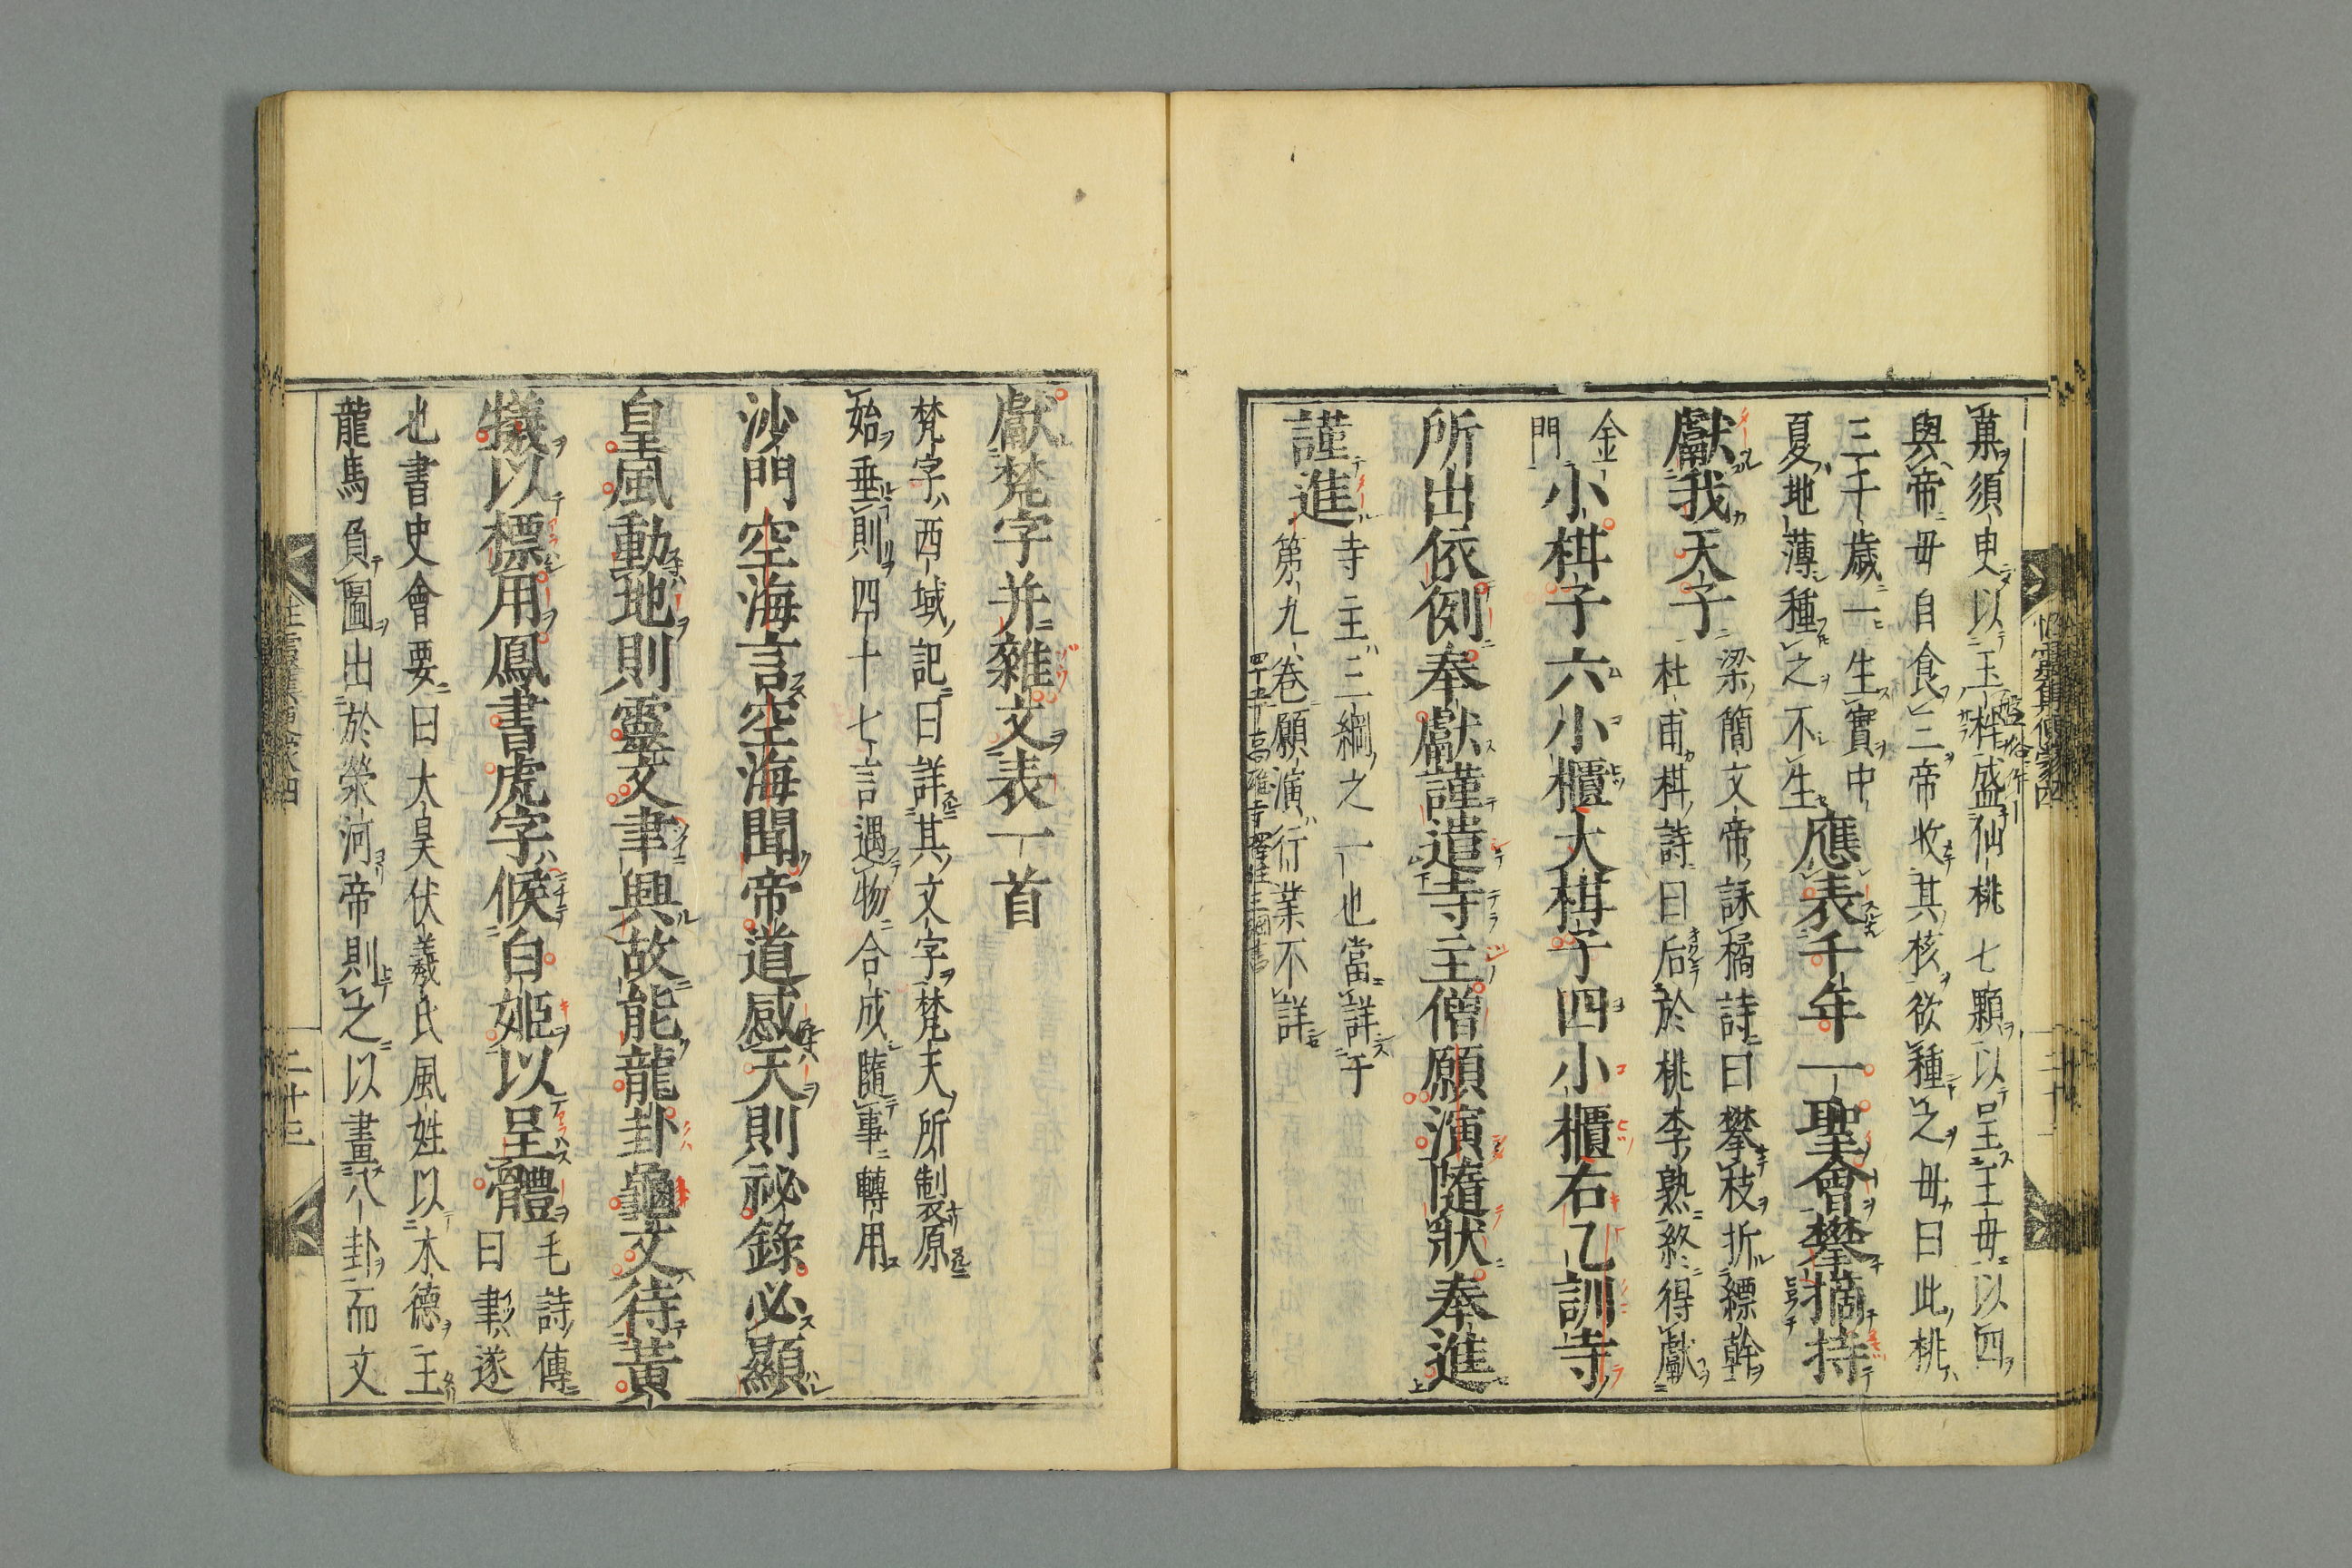 菓須臾以玉柈盛仙桃七顆以呈王母以四
與帝母自食三帝收其核欲種之母曰此桃
三千歲一生實中
夏地薄種之不生
應表千年一聖會攀摘持
獻我天子
梁簡文帝詠橘詩曰攀枝折縹幹
杜甫棋詩曰后於桃李熟終得獻
金
門
小棋子六小櫃大棋子四小櫃右乙訓寺
所出依例奉獻謹遣寺主僧願演隨狀奉進
謹進
寺主三綱之一也當詳于
第九卷願演行業不詳
獻梵字并雜文表一首
梵字西域記曰詳其文字梵天所製原
始垂則四十七言遇物合成隨事轉用
沙門空海言空海聞帝道感天則祕錄必顯
皇風動地則靈文聿興故能龍卦龜文待黃
犧以標用鳳書虎字候白姬以呈體
毛詩傳
曰聿遂
也書史會要曰大昊伏羲氏風姓以木德王
龍馬負圖出於榮河帝則之以畫八卦而文
二十三